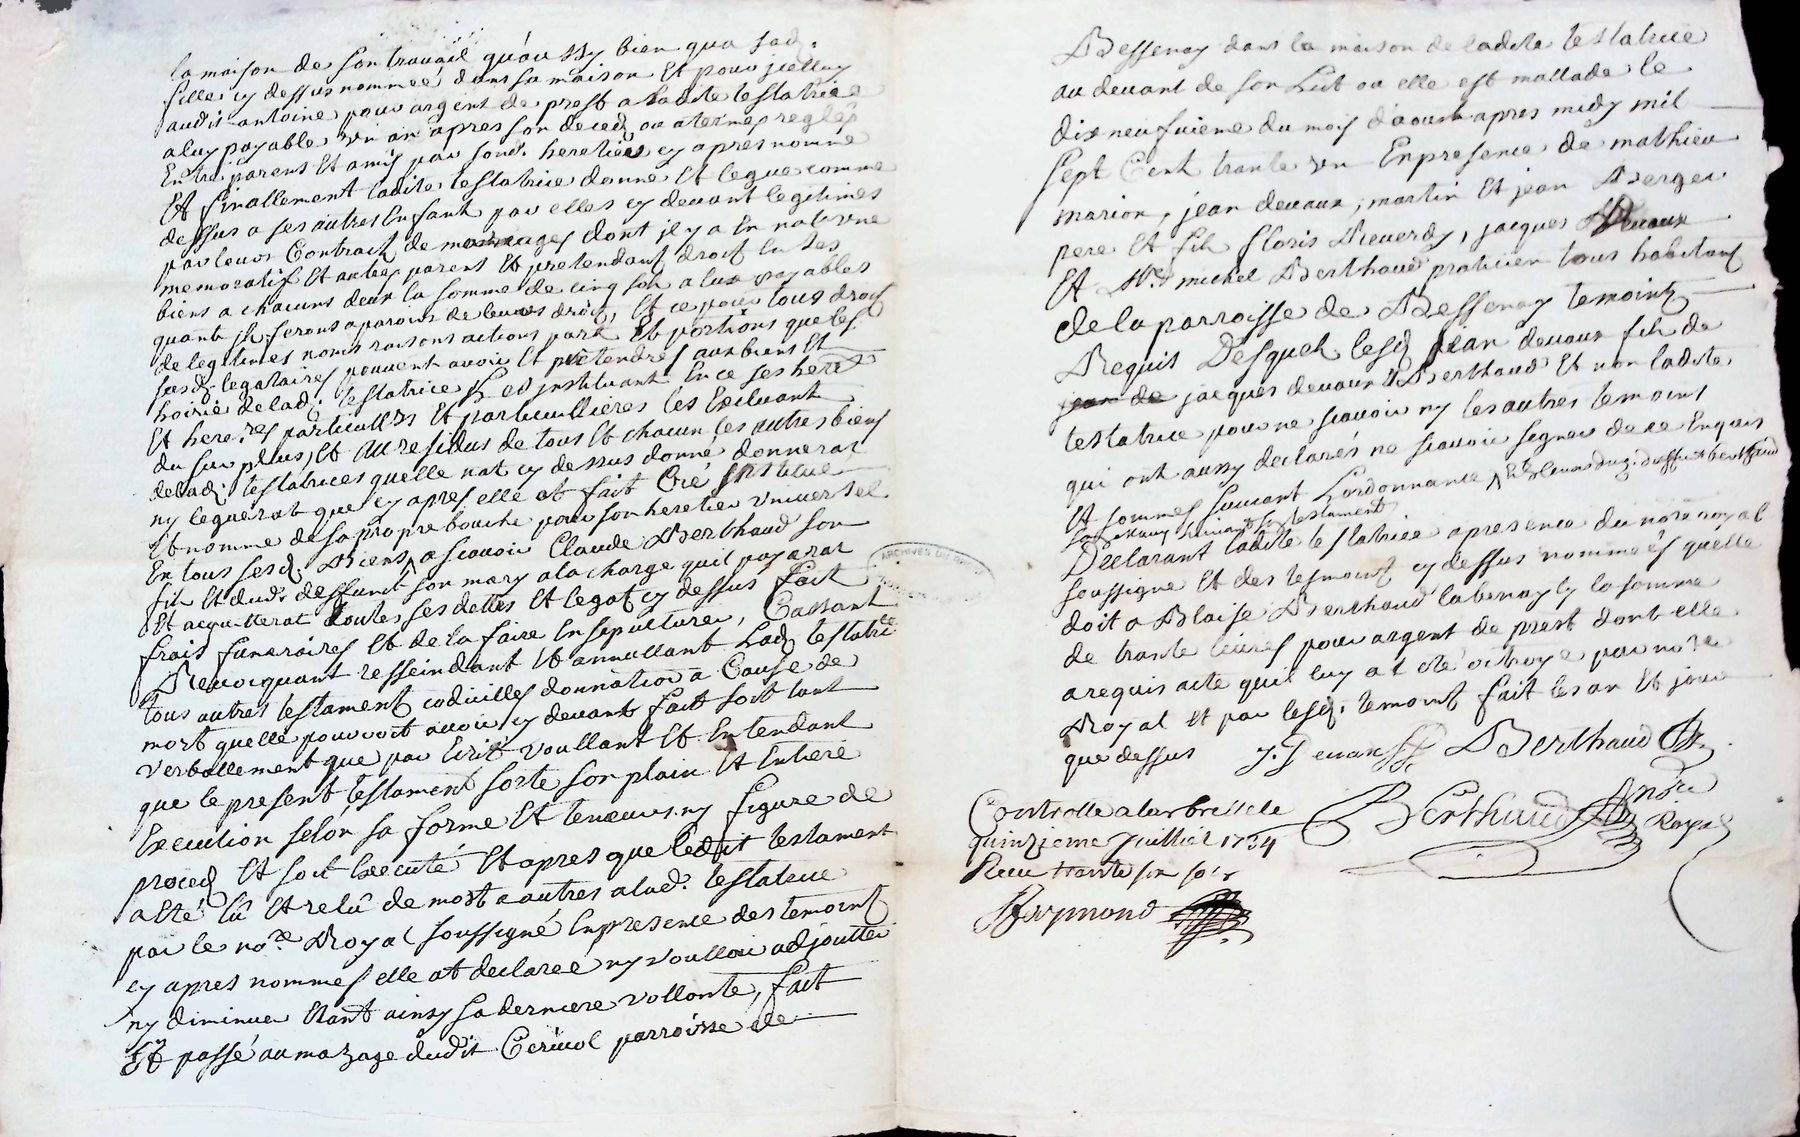 la maison de son travail qu'aussy bien qua sad.
fille cy dessus nommée dans sa maison Et pour jcelluy
audit antoine pour argent de prest a ladite testatrice
a luy payable un an apres son deced. ou a termes reglés
Entre parents Et amis par sond. heretier cy apres nommé
Et finallement ladite testatrice donne Et legue comme
dessus a ses autres Enfants par elles cy devant legitimes
par leurs Contracts de mariages dont jl y a En notte une
memoratif Et autres parent Et pretendant droit En ses
biens a chacuns deux la somme de cinq sols a eux payables
quant jls seront aparoir de leurs droits, Et ce pour tous droits
de legitimes noms raisons actions part Et portions que les
susd. legataires peuvent avoir Et pretendres aux biens Et
hoirie de lad. testatrice les jnstituant En ce ses heret.rs
Et herettres particulliers Et particullieres les Excluant
du surplus, Et Au residus de tous Et chacun les autres biens
de lad. testatrices quelle nat cy dessus donné donnerat
ny leguerat que cy apres elle at fait Créé Institue
Et nomme de sa propre bouche pour son heretier universel
En tous sesd. Biens, a scavoir Claude Berthaud son
fils Et dud. deffunct son mary a la charge quil payerat
Et acquitterat toutes ses dettes Et legat cy dessus fait
frais funeraires Et de la faire Ensepulturer, Cassant
Revocquant resseindant Et annullant Lad. testatrice
tous autres testament codicilles donnation a Cause de
mort quelle pourroit avoir cy devant fait soit tant
verballement que par Ecrit voullant Et Entendant
que le present testament sorte son plain Et Entiere
Execution selon sa forme Et teneur ny figure de
proced Et soit Executé Et apres que ledit testament
a Eté lû Et relû de mot a autres a lad. testatrice
par le no.re Royal soussigné En presence des temoint
cy apres nommes elle at declareé ny voulloir adjoutter
ny diminuer Etant ainsy sa derniere vollonte, fait
Et passé au mazage dudit Cerivol parroisse de
Bessenay dans la maison de ladite testatrice
au devant de son Lict ou elle est mallade le
dix neufvieme du mois d'aoust apres midy mil
sept Cent trante un En presence de mathieu
marion, jean devaux, martin Et jean Berger
pere Et fils floris Reverdy, jacques Devaux
Et M.e michel Berthaud praticien tous habitants
de la parroisse de Bessenay temoints
Requis Desquels lesd. jean devaux fils de
jacques devaux Berthaud Et non ladite
testatrice pour ne scavoir ny les autres temoins
qui ont aussy declarés ne scavoir signer de ce Enquis
Et sommes suivant Lordonnance
testament
Declarant ladite testatrice a presence du nore royal
soussigne Et des tesmoints cy dessus nommeés quelle
doit a Blaise Berthaud la somme
de trante livres pour argent de prest dont elle
a requis acte quil luy at eté octroye par nore
Royal et par lesd. temoint fait les an Et jour
que dessus J. Devaux Berthaud
Controlle a Larbresle le Berthaud nore
quinzieme Juillet 1734 Royal
Receu trante six sols
Raymond
ARCHIVES DU